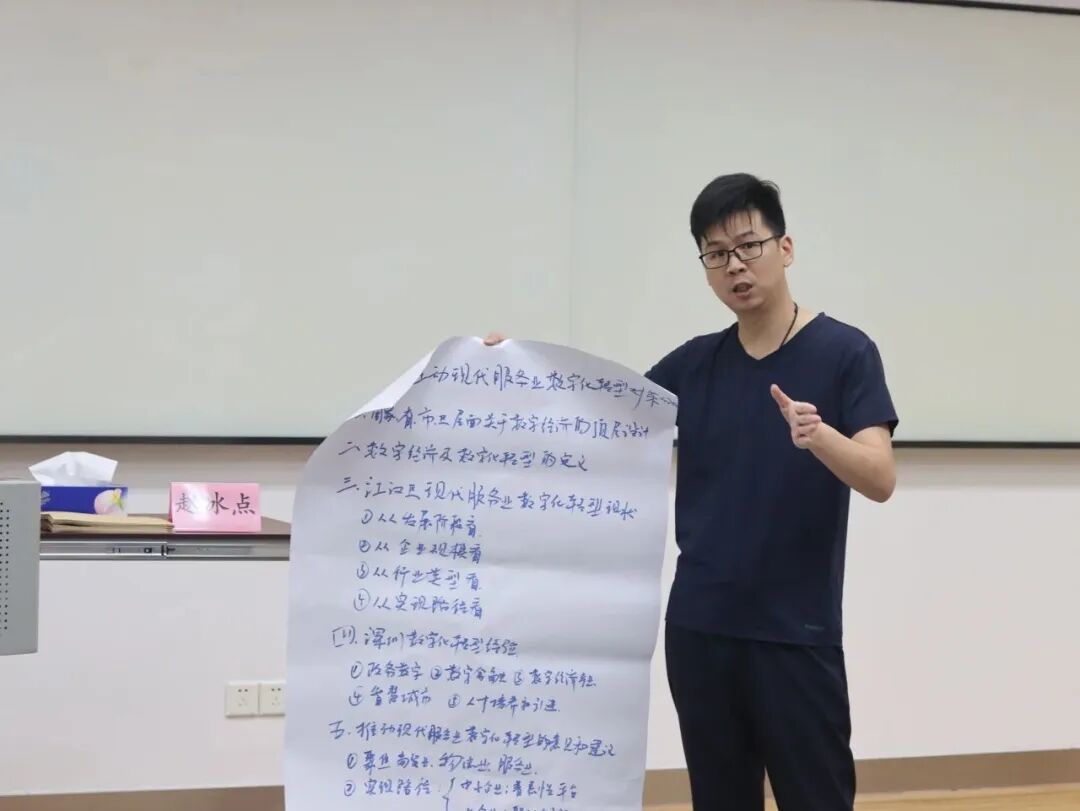 动现代服务业数字化转型对策
一、国家、省、市、区层面关于数字经济的顶层设计
二、数字经济及数字化转型的定义
三、江汉区现代服务业数字化转型现状
①从发展阶段看
②从企业规模看
赵冰点
③从行业类型看
④从实现路径看
四、深圳数字化转型经验
①政务数字 ②数字金融 ③数字经济
④智慧城市 ⑤人才培养和引进
五、推动现代服务业数字化转型的意见和建议
①聚焦商贸业、物流业、服务业
②实现路径: 中小企业:普惠性平台